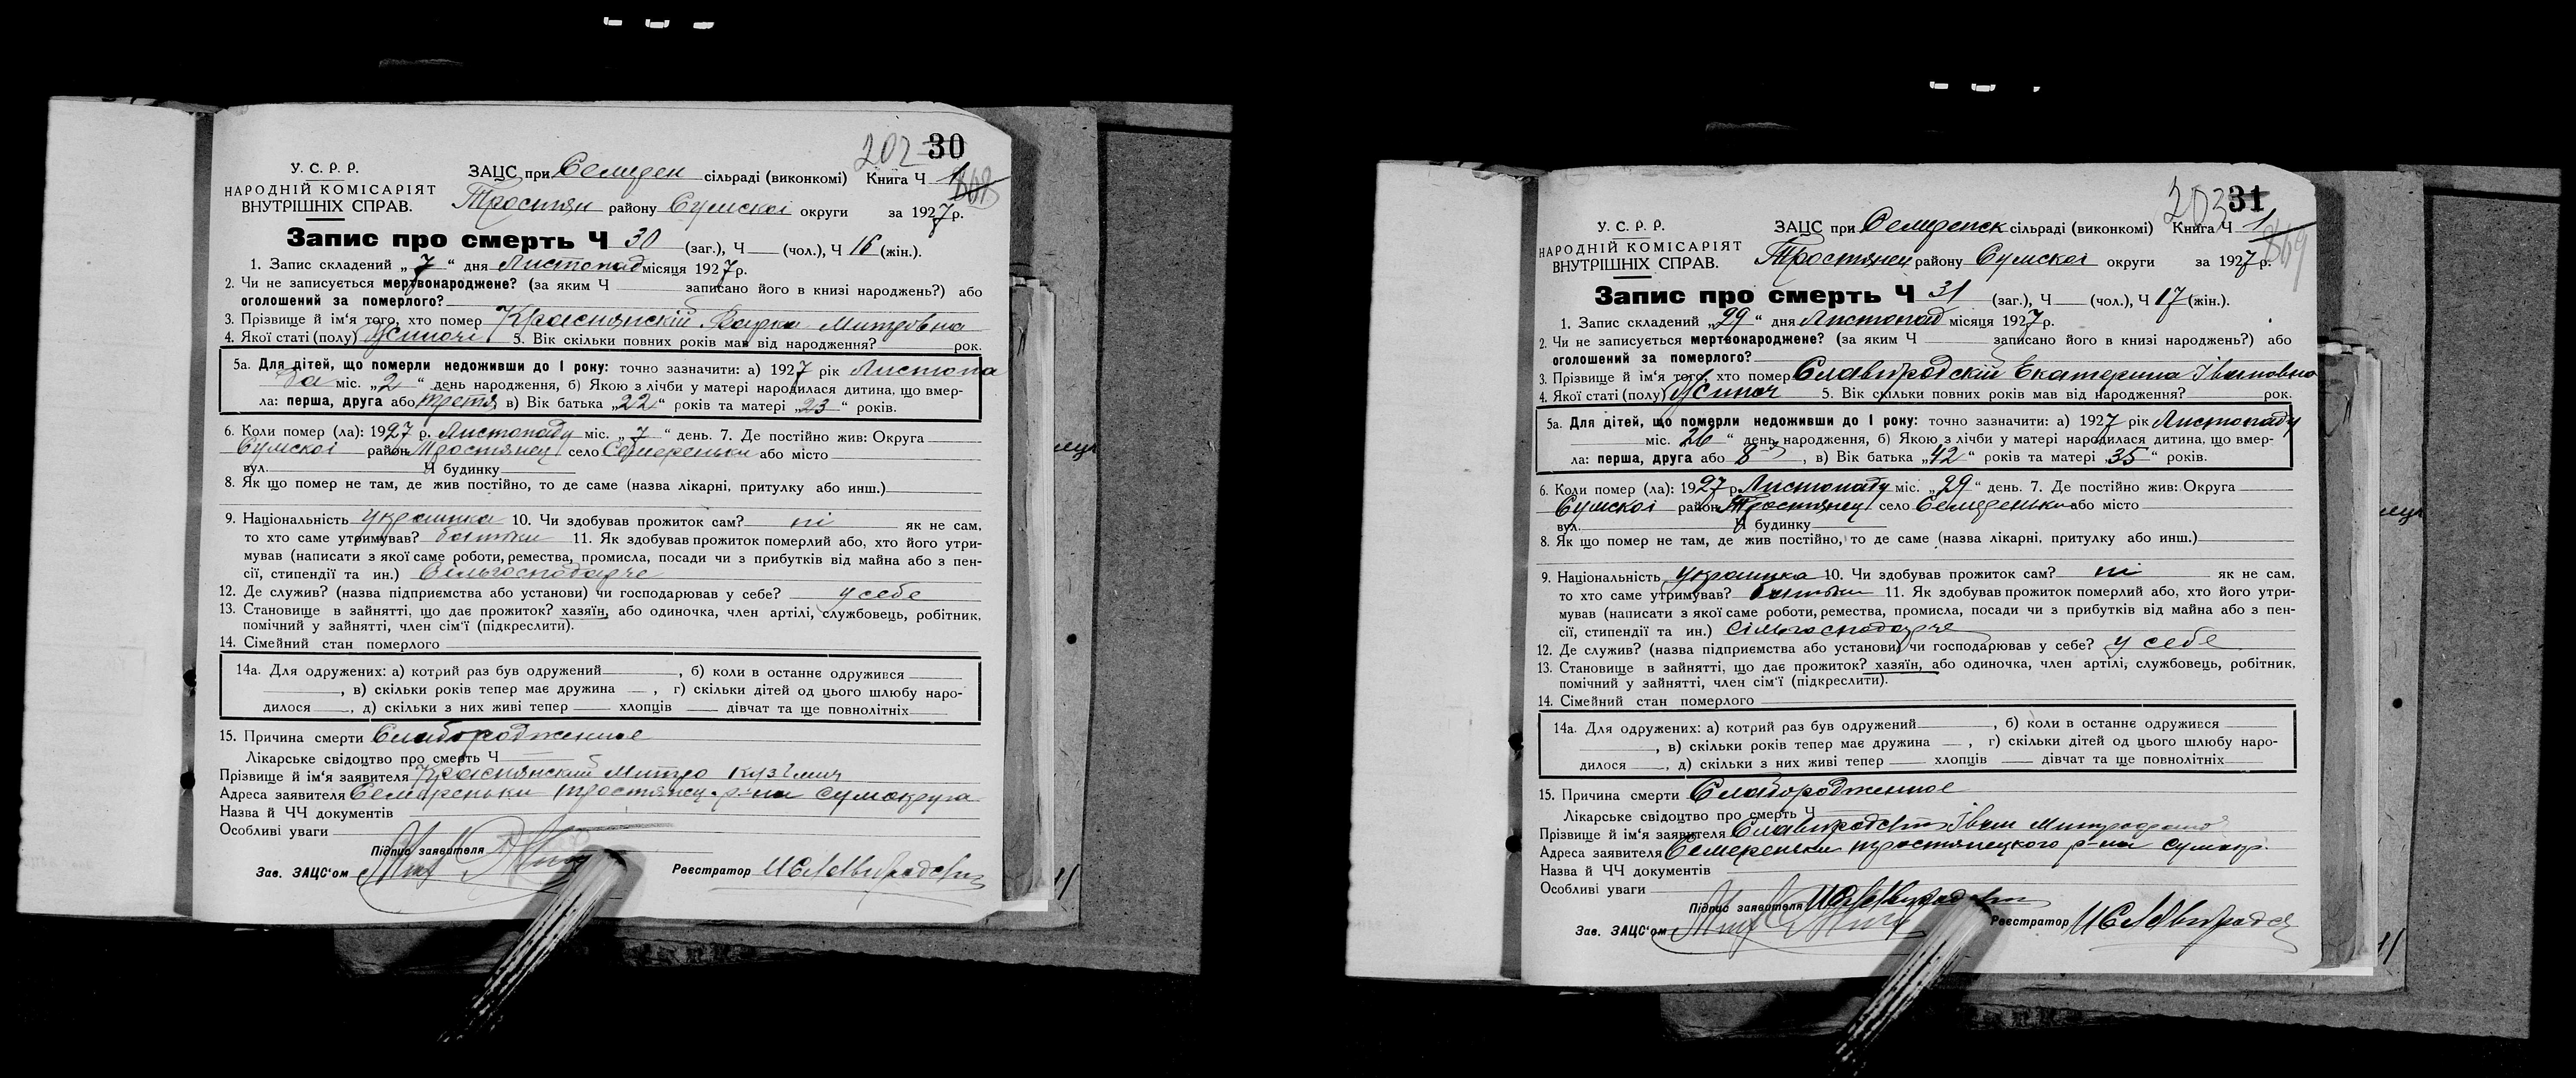 202 30
У. С. Р. Р.
НАРОДНІЙ КОМІСАРІЯТ
ВНУТРІШНІХ СПРАВ.
ЗАЦС при Семерен сільраді (виконкомі) Книга Ч 1
Тростян району Сумскої округи за 1927 р.
Запис про смерть Ч 30 (заг.), Ч (чол.), Ч 16 (жін.).
1. Запис складений „7“ дня Листопад місяця 1927 р.
2. Чи не записується мертвонароджене? (за яким Ч записано його в книзі народжень?) або
оголошений за померлого?
3. Прізвище й ім'я того, хто помер Краснянскій Варка Митровна
4. Якої статі (полу) Жиночі 5. Вік скільки повних років мав від народження? рок.
5а. Для дітей, що померли недоживши до 1 року: точно зазначити: а) 1927 рік Листопа
да міс. „2“ день народження, б) Якою з лічби у матері народилася дитина, що вмер-
ла: перша, друга або третя, в) Вік батька „22“ років та матері „23“ років.
6. Коли помер (ла): 1927 р. Листопаду міс. „7“ день. 7. Де постійно жив: Округа
Сумскої район Тростянец село Семереньки або місто
вул. Ч будинку
8. Як що помер не там, де жив постійно, то де саме (назва лікарні, притулку або инш.)
9. Національність українка 10. Чи здобував прожиток сам? ні як не сам,
то хто саме утримував? батьки 11. Як здобував прожиток померлий або, хто його утри-
мував (написати з якої саме роботи, ремества, промисла, посади чи з прибутків від майна або з пен-
сії, стипендії та ин.) Сільгосподарче
12. Де служив? (назва підприємства або установи) чи господарював у себе? у себе
13. Становище в зайнятті, що дає прожиток? хазяїн, або одиночка, член артілі, службовець, робітник,
помічний у зайнятті, член сім'ї (підкреслити).
14. Сімейний стан померлого
14а. Для одружених: а) котрий раз був одружений , б) коли в останнє одружився
, в) скільки років тепер має дружина , г) скільки дітей од цього шлюбу наро-
дилося , д) скільки з них живі тепер хлопців дівчат та ще повнолітніх
15. Причина смерти Слаборожденное
Лікарське свідоцтво про смерть Ч
Прізвище й ім'я заявителя Краснянский Митро Кузьмич
Адреса заявителя Семереньки тростянец. р-на сумокруга
Назва й ЧЧ документів
Особливі уваги
Підпис заявителя
Зав. ЗАЦС'ом Реєстратор
203 31
У. С. Р. Р.
НАРОДНІЙ КОМІСАРІЯТ
ВНУТРІШНІХ СПРАВ.
ЗАЦС при Семеренск сільраді (виконкомі) Книга Ч 1
869
Тростянец району Сумскої округи за 1927 р.
Запис про смерть Ч 31 (заг.), Ч (чол.), Ч 17 (жін.).
1. Запис складений „29“ дня Листопад місяця 1927 р.
2. Чи не записується мертвонароджене? (за яким Ч записано його в книзі народжень?) або
оголошений за померлого?
3. Прізвище й ім'я того, хто помер Славгородскій Екатерина Івановна
4. Якої статі (полу) Жиноч 5. Вік скільки повних років мав від народження? рок.
5а. Для дітей, що померли недоживши до 1 року: точно зазначити: а) 1927 рік Листопаду
міс. 26 “ день народження, б) Якою з лічби у матері народилася дитина, що вмер-
ла: перша, друга або 8 , в) Вік батька „42“ років та матері „35“ років.
6. Коли помер (ла): 1927 р. Листопаду міс. „29“ день. 7. Де постійно жив: Округа
Сумскої район Тростянец село Семереньки або місто
вул. Ч будинку
8. Як що помер не там, де жив постійно, то де саме (назва лікарні, притулку або инш.)
9. Національність українка 10. Чи здобував прожиток сам? ні як не сам,
то хто саме утримував? батьки 11. Як здобував прожиток померлий або, хто його утри-
мував (написати з якої саме роботи, ремества, промисла, посади чи з прибутків від майна або з пен-
сії, стипендії та ин.) сільгосподарче
12. Де служив? (назва підприємства або установи) чи господарював у себе? у себе
13. Становище в зайнятті, що дає прожиток? хазяїн, або одиночка, член артілі, службовець, робітник,
помічний у зайнятті, член сім'ї (підкреслити).
14. Сімейний стан померлого
14а. Для одружених: а) котрий раз був одружений , б) коли в останнє одружився
, в) скільки років тепер має дружина , г) скільки дітей од цього шлюбу наро-
дилося , д) скільки з них живі тепер хлопців дівчат та ще повнолітніх
15. Причина смерти Слаборожденное
Лікарське свідоцтво про смерть Ч
Прізвище й ім'я заявителя Іван
Адреса заявителя Семереньки тростянецкого р-на сумокр.
Назва й ЧЧ документів
Особливі уваги
Підпис заявителя
Зав. ЗАЦС'ом Реєстратор